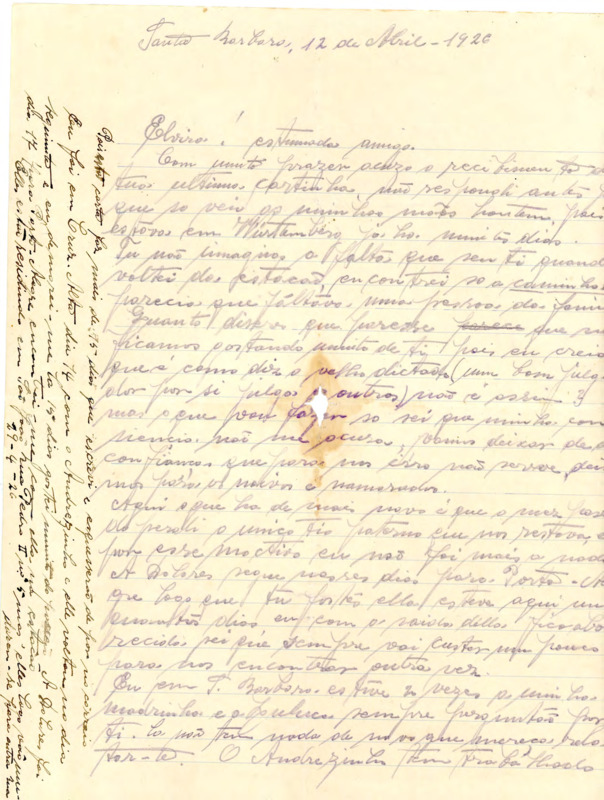 Santa Barbara, 12 de Abril - 1926
Elvira! estimada amiga.
Com muito prazer acuzo o recibimento d
tua ultima cartinha, não respondi antes p
que so veio as minhas mãos hontem, pois
estava em Württemberg já ha muitos dias.
Tu não imaginas a falta que senti quand
voltei da estacão, encontrei so a caminho
parecia que faltava uma pessoa da fami
Quanto dizeres que paresse que
ficamos gostando muito de ti, pois eu creio
que é como diz o velho dictado (um bom julga
dor por si julga o outros) não é assim?
mas o que vou fazer so sei que minha con
siencia não me acuza, vamos deixar de
confiança que para nos isso não serve, dei
mos para os noivos e namorados.
Aqui o que ha de mais novo é que o mez pass
do perdi o unico tio paterno que nos restava, e
por esse motivo eu não fui mais a nada
A Dolores segue nestes dias para Porto-Ale
gre logo que tu foste ella esteve aqui un
quantos dias eu com a saida della fico abo
recida sei que sempre vai custar um pouco
para nos encontrar outra vez.
Eu em S. Barbara estive 2 vezes a minha
madrinha e a Paulina sempre perguntão por
ti. la não tem nada de novo que mereça rela
tar-te. O Andrezinho tem trabalhado
esta carta faz mais de 15 dias que escrevi e esqueserão de por no correio
Eu fui em Cruz-Alta dia 14 com o Andrezinho e elle voltou no dia
seguinte e eu demorei-me la 15 dias gostei muito do passeio. A Dolores foi
dia 17 para Porto-Alegre
Ella está residindo em São João rua Pedro II nº 5 mas elles logo vão mu
darem-se para outra rua
29-4-26